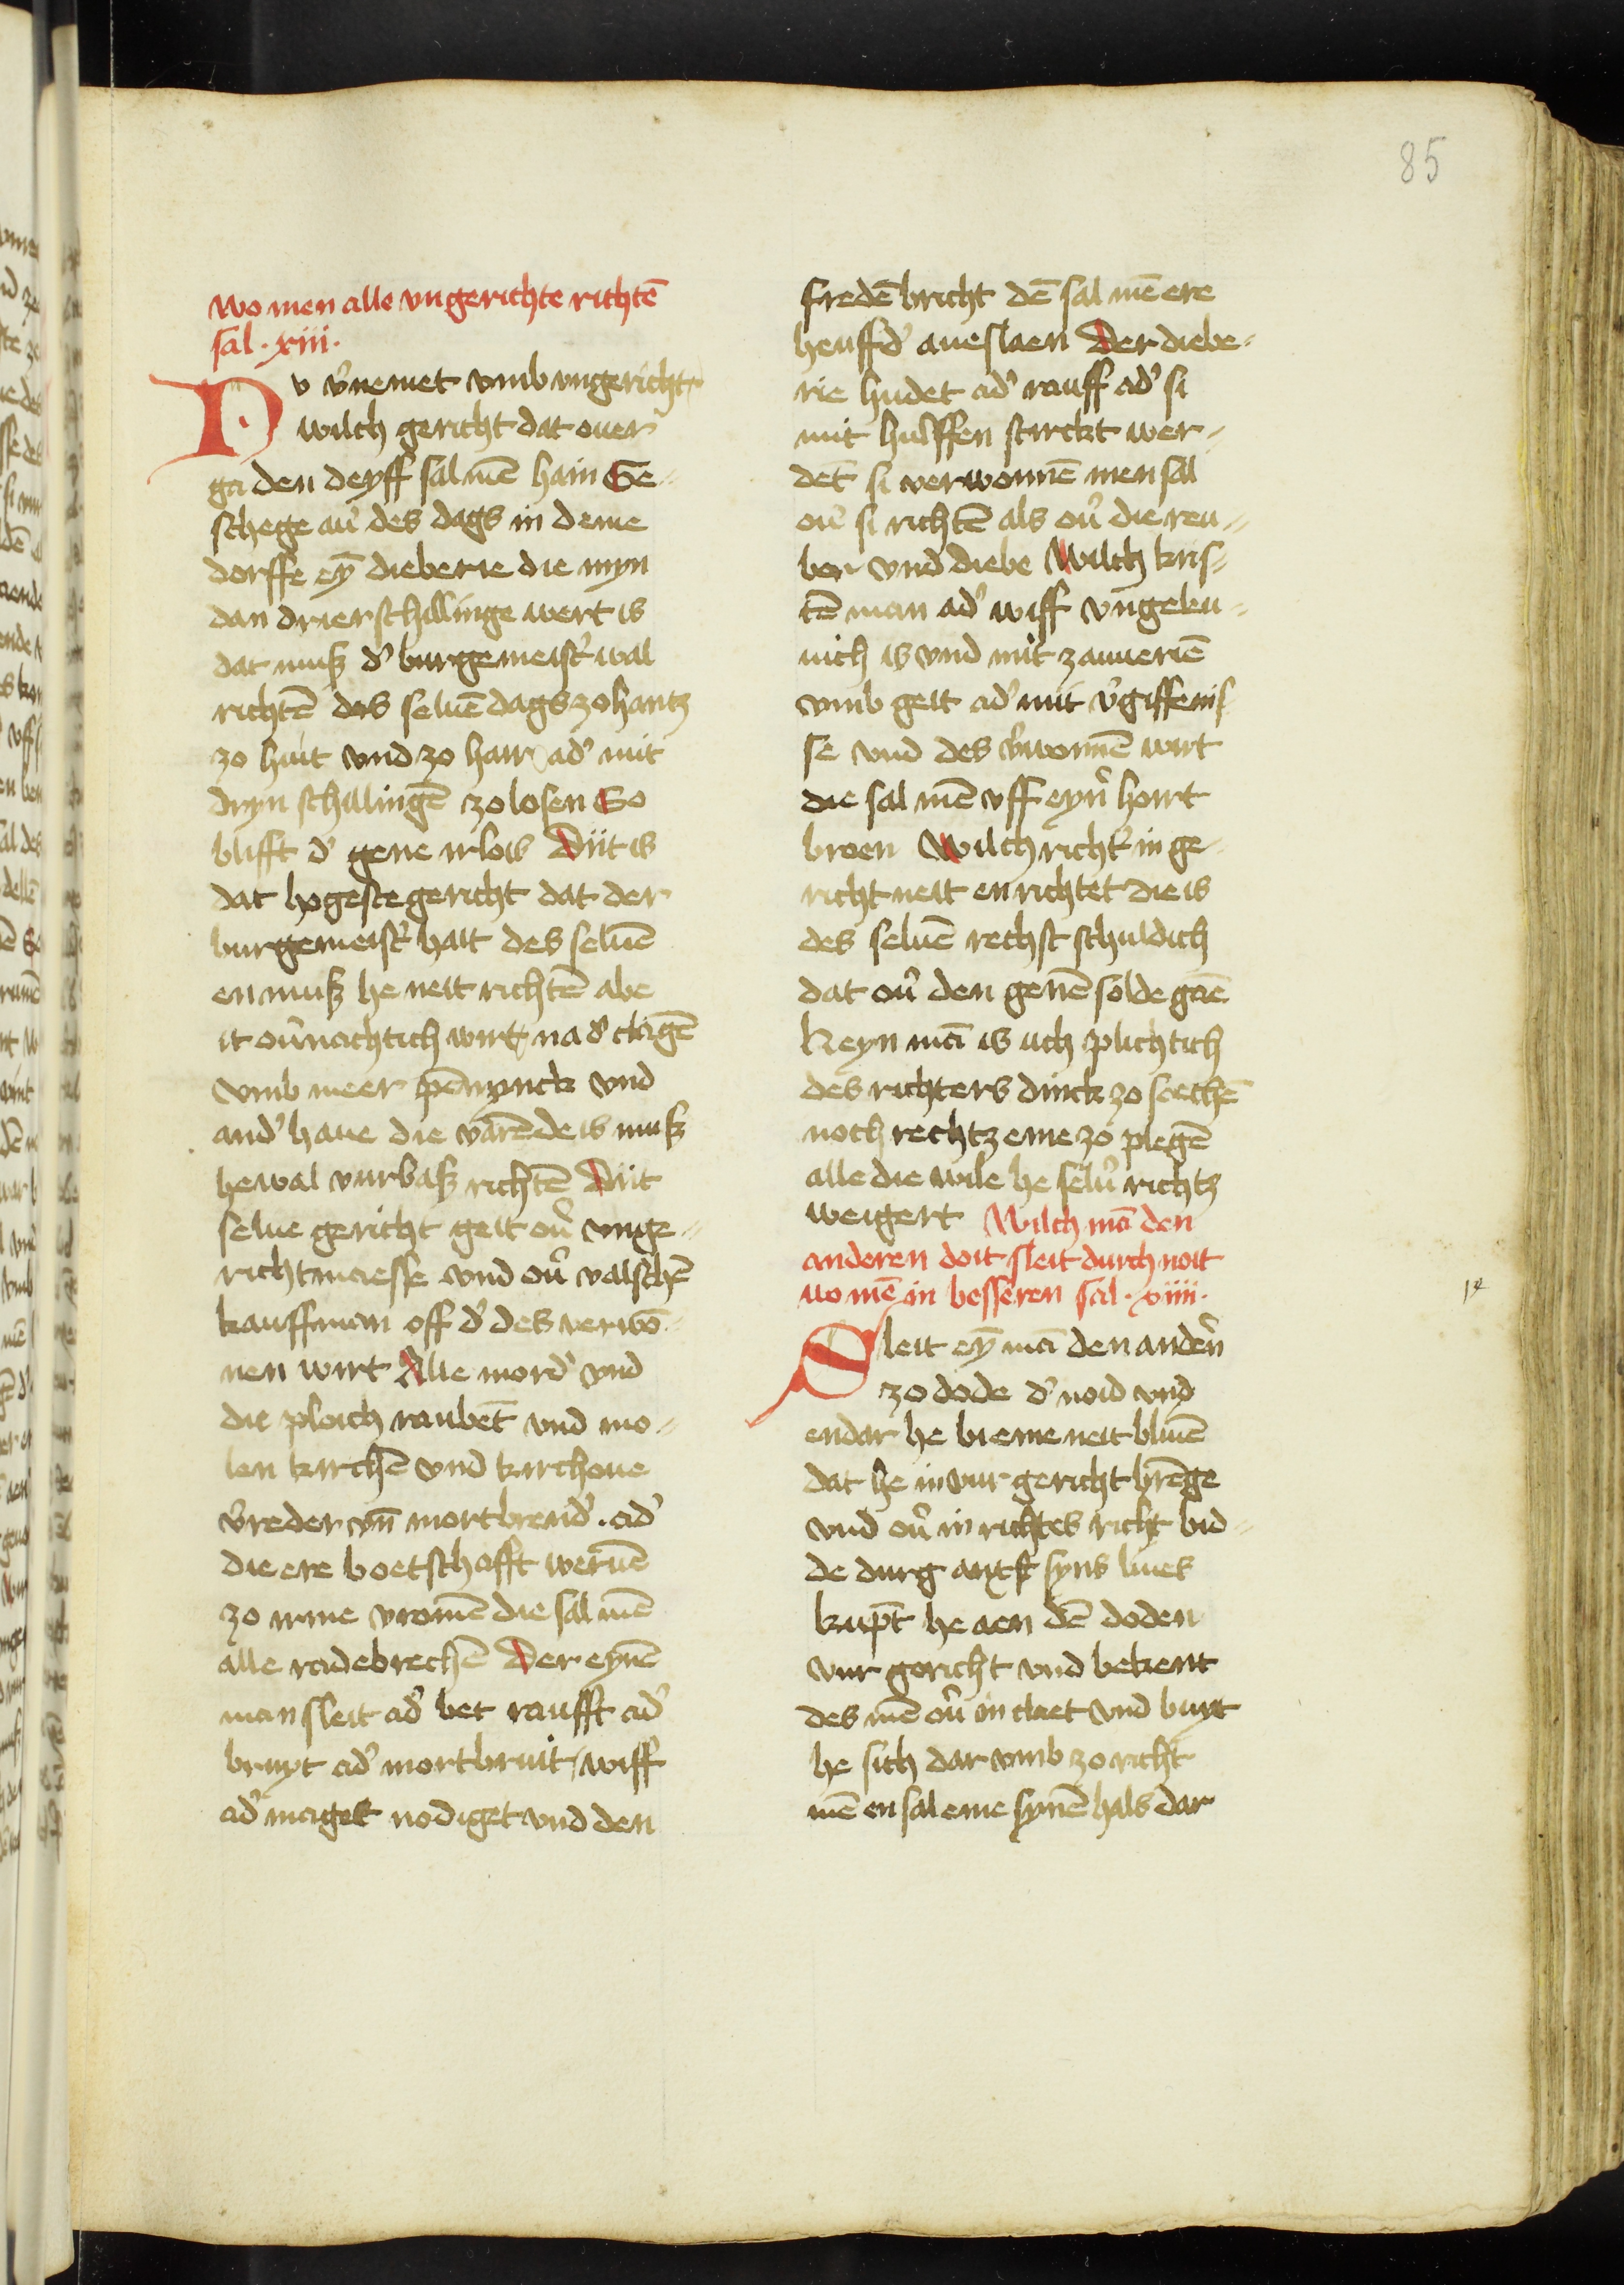 85
Wo men alle vngerichte richtē
sal · xiii ·
Nv v̉nemet vmb vngericht
wilch gericht dat ouer
ga den deyff sal mē hain Ge-
schege au̓ des dags in deme
dorffe eȳ dieberie die myn
dan drier schillinge wert is
dat muß d̓ burgemeist̓ wal
richtē des seluē dags zohantz
zo huit vnd zo harr ad̓ mit
dryn schillingē zo losen So
blifft d̓ gene irlois Diit is
dat hogeste gericht dat der
burgemeist̓ hait des seluē
en muß he neit richtē abe
it ou̓nachtich wirt na d̓ clagē
vmb meer pēnynck vnd
and̓ haue die varēde is muß
he wal vurbaß richtē Diit
selue gericht geit ou̓ vnge-
richtmaesse vnd ou̓ valschē
kauffman off d̓ des verwō-
nen wirt Alle mord̓ vnd
die ploich raubēt vnd mo-
len kirchē vnd kirchoue
v̉reder vn̄ mortbrend̓ · ad̓
die ere boetschafft weruē
zo irme vromē die sal mē
alle radebrechē Der eynē
man sleit ad̓ bet raufft ad̓
bruyt ad̓ mortbruit wiff
ad̓ maget nodiget vnd den
fredē bricht dē sal mē ere
heuffd̓ aueslaen Der diebe-
rie hudet ad̓ rauff ad̓ si
mit hulffen stirckt wer-
dēt si verwonnē men sal
ou̓ si richtē als ou̓ die reu-
ber vnd diebe Wilch kris-
tē man ad̓ wiff vngeleu-
uich is vnd mit zauueriē
vmb geit ad̓ mit v̉giffenis-
se vnd des v̉wonnē wirt
die sal mē vff eyn̓ horrt
broen Wilch richt̓ in ge-
richt neit en richtet die is
des seluē rechst schuldich
dat ou̓ den genē solde gaē
Keyn mā is uch plichtich
des richters dinck zo soechē
noch rechtz eme zo plegē
alle die wile he selu̓ richtz
weigert Wilch mā den
anderen doit sleit durch noit
wo mē in besseren sal · xiiii ·
Sleit eȳ mā den anden̓
zo dode d̓ noid vnd
endar he bi eme neit bliuē
dat he in vur gericht brēge
vnd ou̓ in richtes richt bid-
de durg anxst syns liues
kūpt he aen dē doden
vur gericht vnd bekent
des mē ou̓ in claet vnd buyt
he sich dar vmb zo richt
mē en sal eme synē hals dar